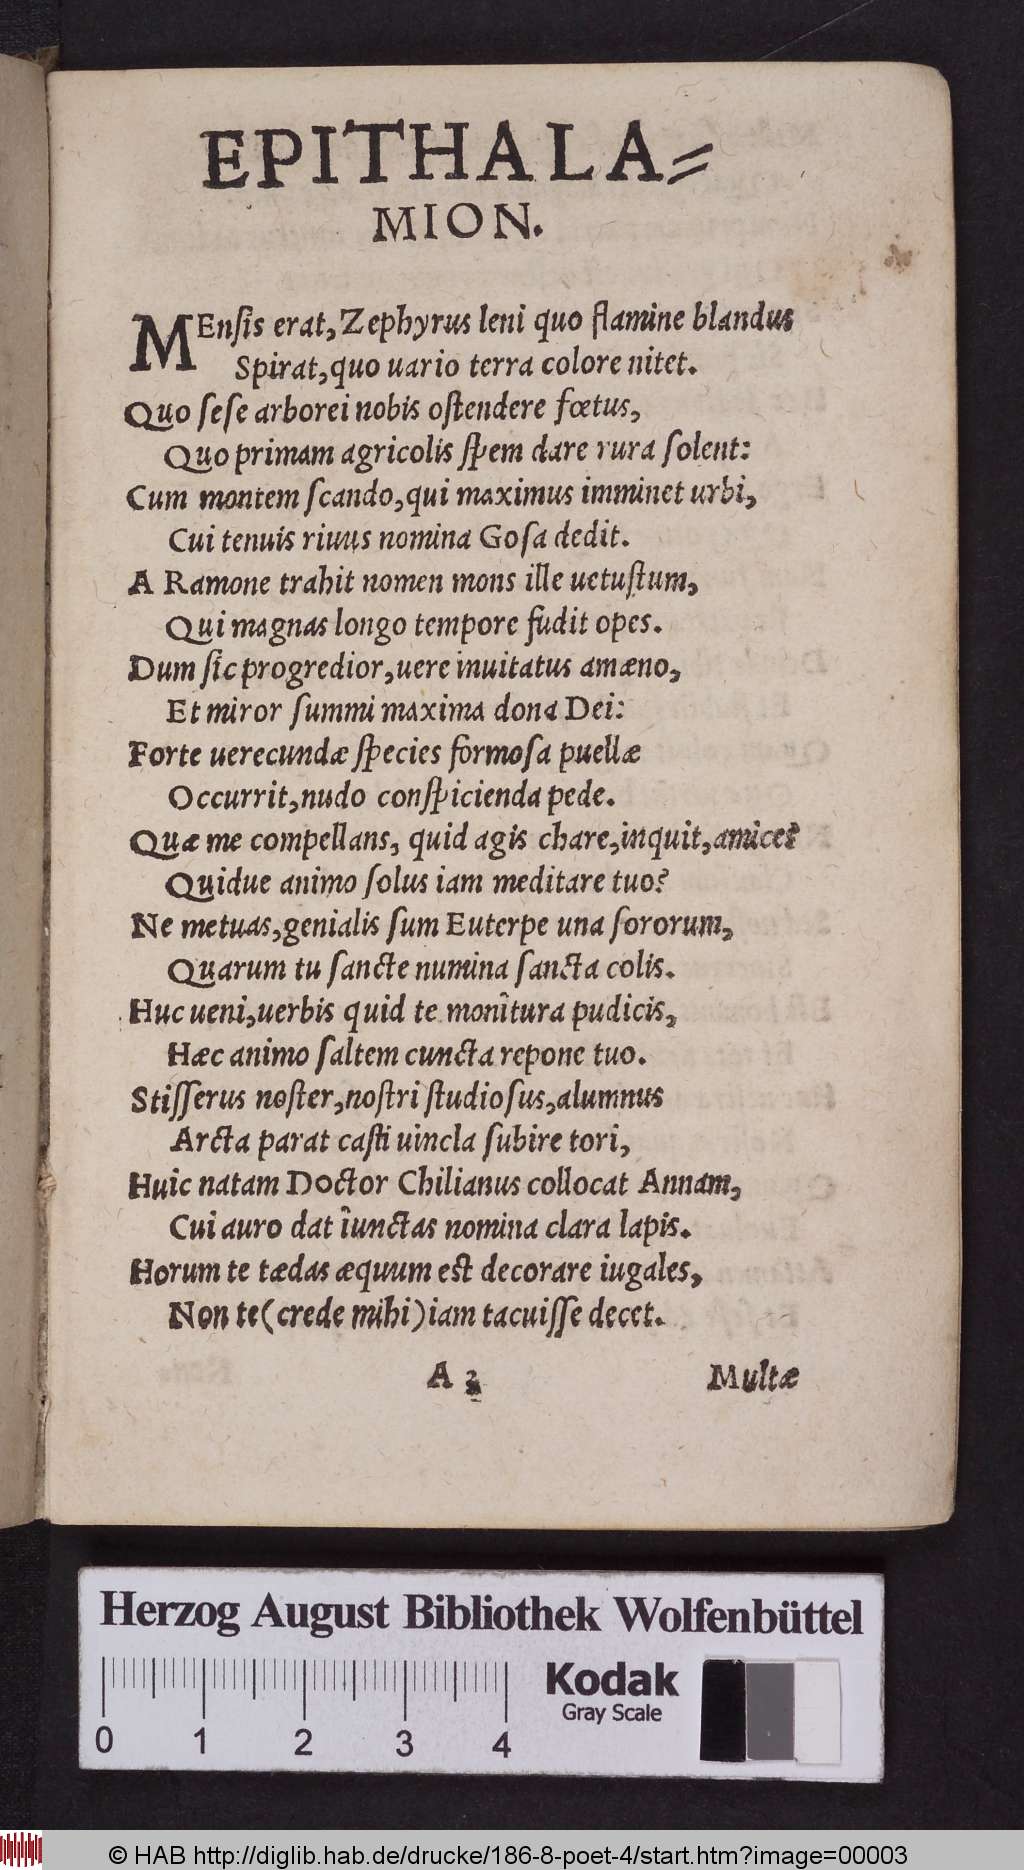 EPITHALA=
MION.
MEnſis erat, Zephyrus leni quo flamine blandus
Spirat, quo uario terra colore nitet.
Quo ſeſe arborei nobis oſtendere fœtus,
Quo primam agricolis ſpem dare rura ſolent:
Cum montem ſcando, qui maximus imminet urbi,
Cui tenuis riuus nomina Goſa dedit.
A Ramone trahit nomen mons ille uetuſtum,
Qui magnas longo tempore fudit opes.
Dum ſic progredior, uere inuitatus amæno,
Et miror ſummi maxima dona Dei:
Forte uerecundæ ſpecies formoſa puellæ
Occurrit, nudo conſpicienda pede.
Quæ me compellans, quid agis chare, inquit, amice?
Quidue animo ſolus iam meditare tuo?
Ne metuas, genialis ſum Euterpe una ſororum,
Quarum tu ſancte numina ſancta colis.
Huc ueni, uerbis quid te monîtura pudicis,
Hæc animo ſaltem cuncta repone tuo.
Stiſſerus noſter, noſtri ſtudioſus, alumnus
Arcta parat caſti uincla ſubire tori,
Huic natam Doctor Chilianus collocat Annam,
Cui auro dat îunctas nomina clara lapis.
Horum te tædas æquum eſt decorare iugales,
Non te (crede mihi) iam tacuiſſe decet.
A 2 Multæ
Herzog August Bibliothek Wolfenbüttel
Kodak
Gray Scale
0 1 2 3 4
© HAB http://diglib.hab.de/drucke/186-8-poet-4/start.htm?image=00003